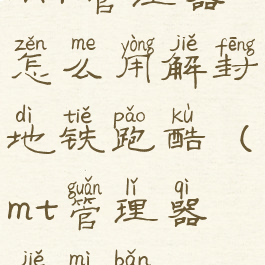 管理器
zěn me yòng jiě fēng
怎么用解封
dì tiě pǎo kù
地铁跑酷（
guǎn lǐ qì
mt管理器
jiě mì bǎn